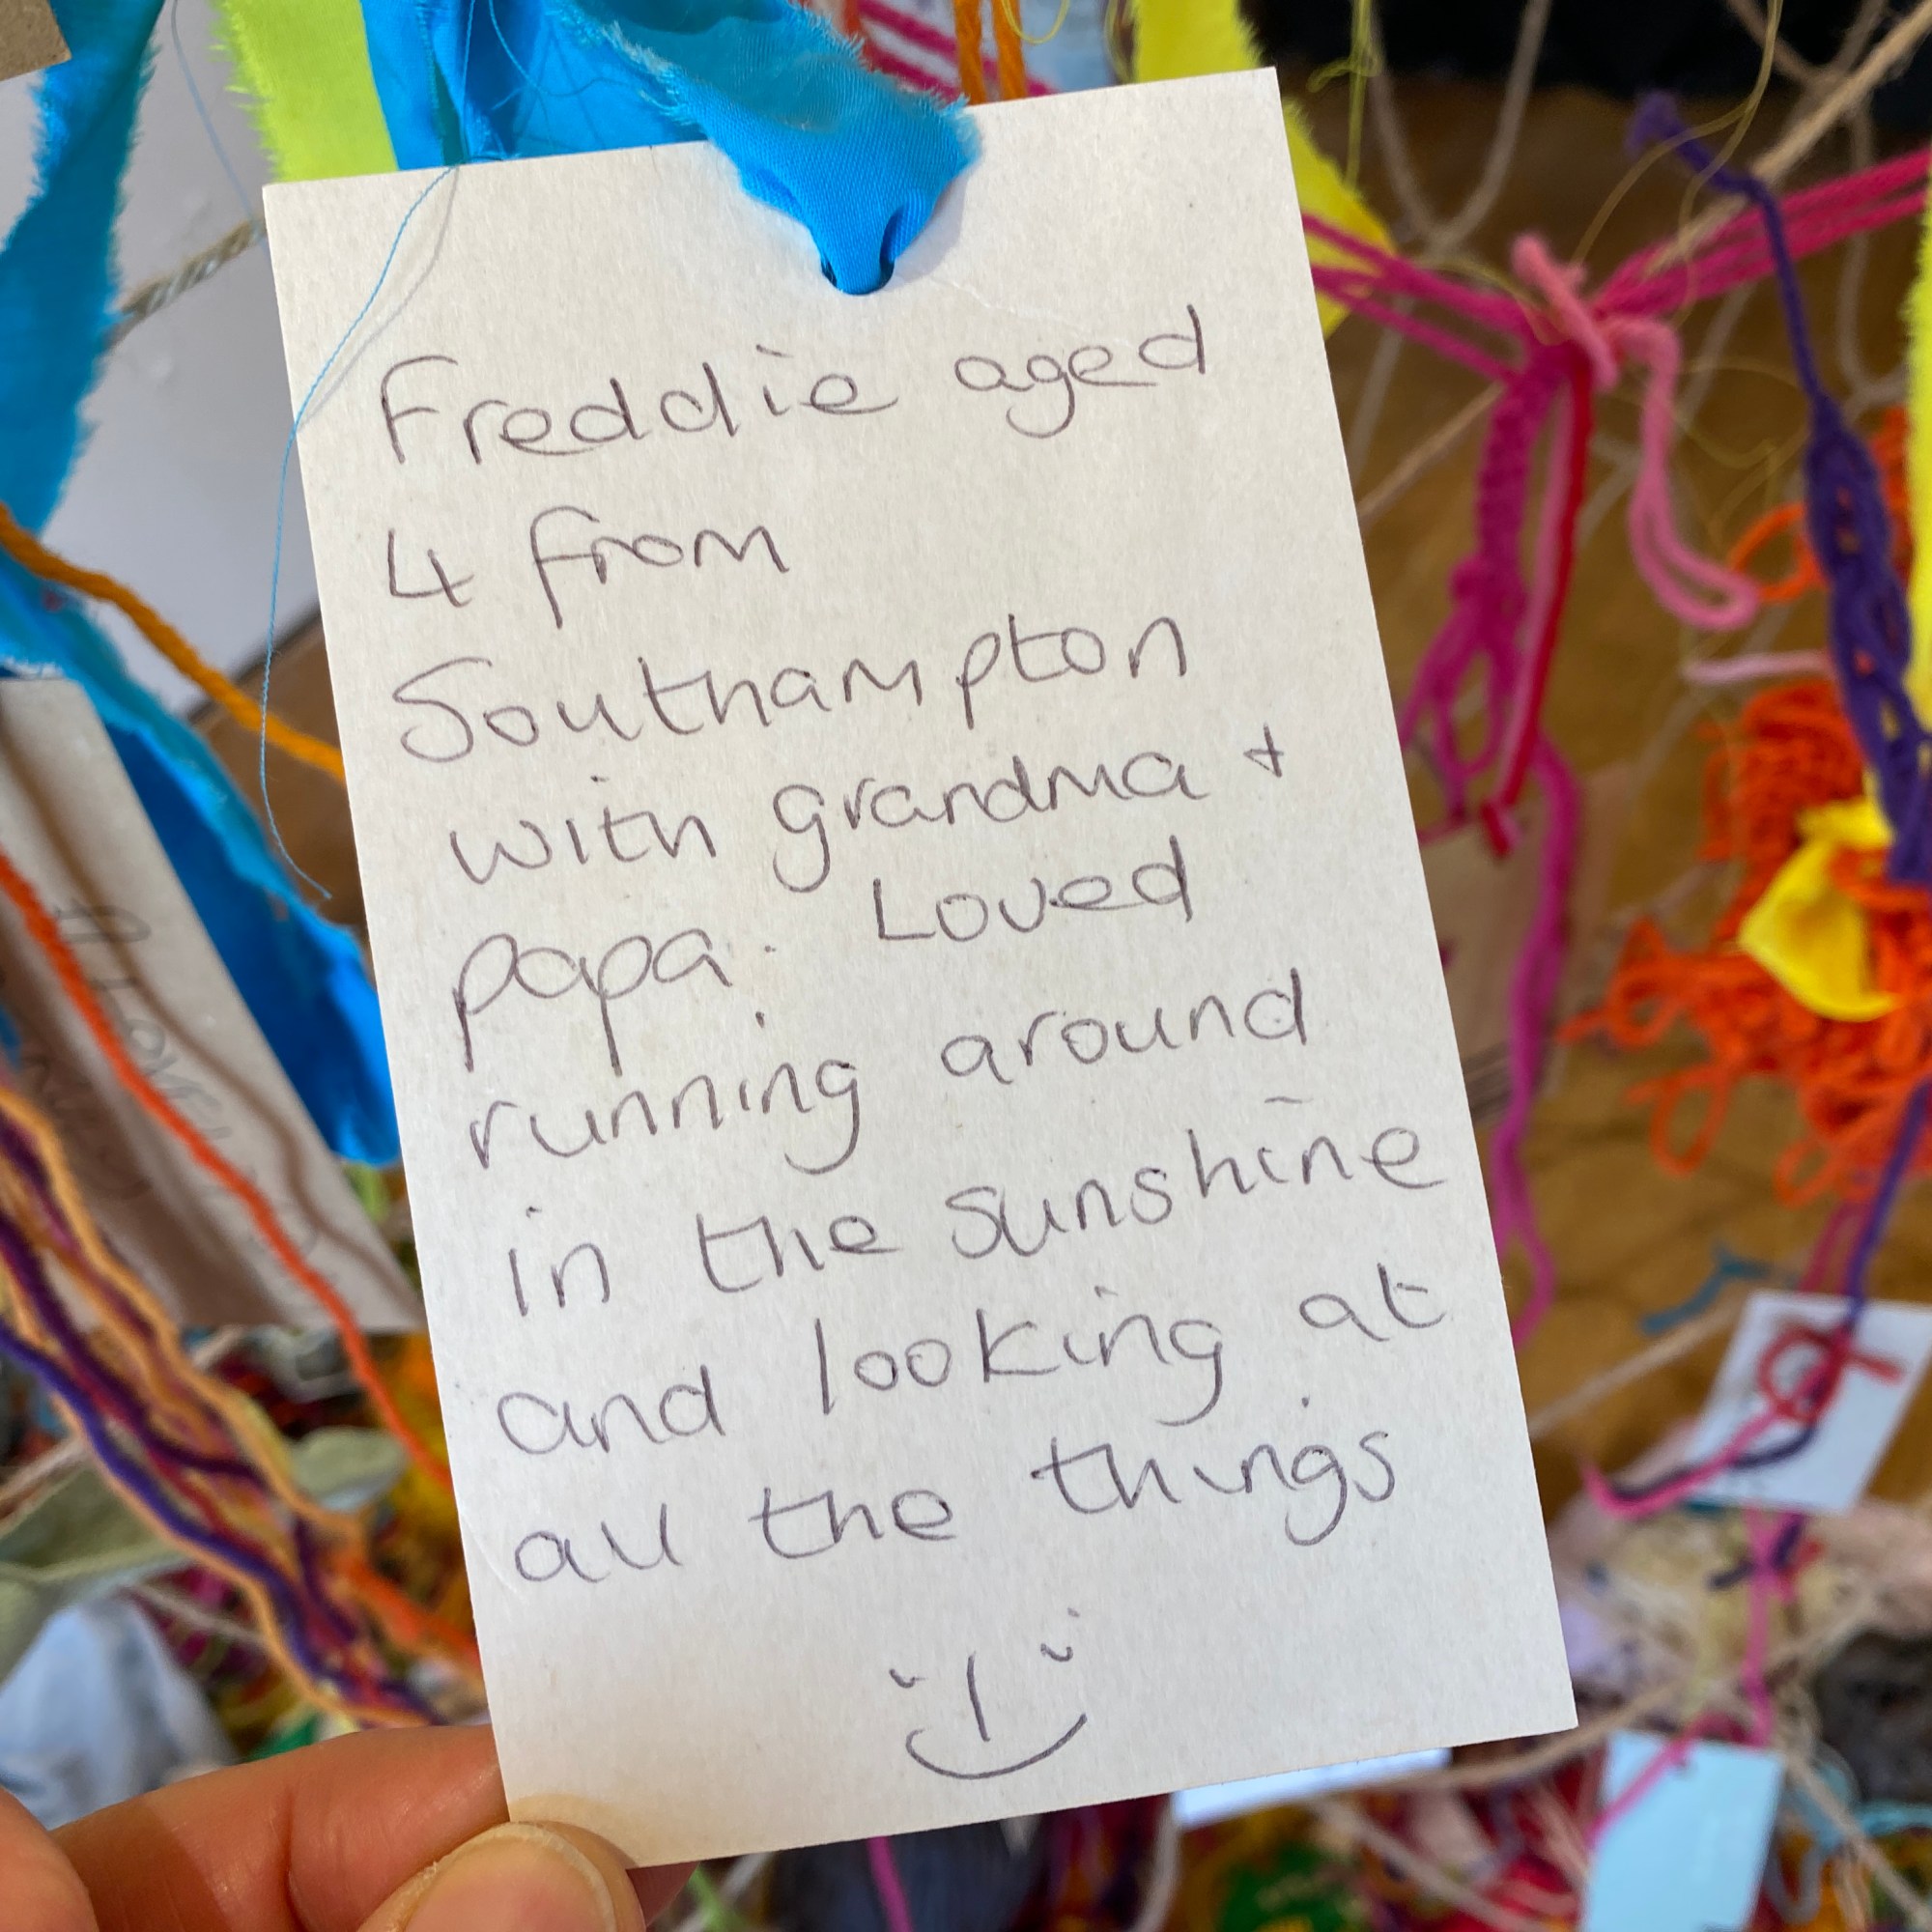 Freddie aged
4 from
Southampton
with grandma +
papa. Loved
running around
in the sunshine
and looking at
all the things